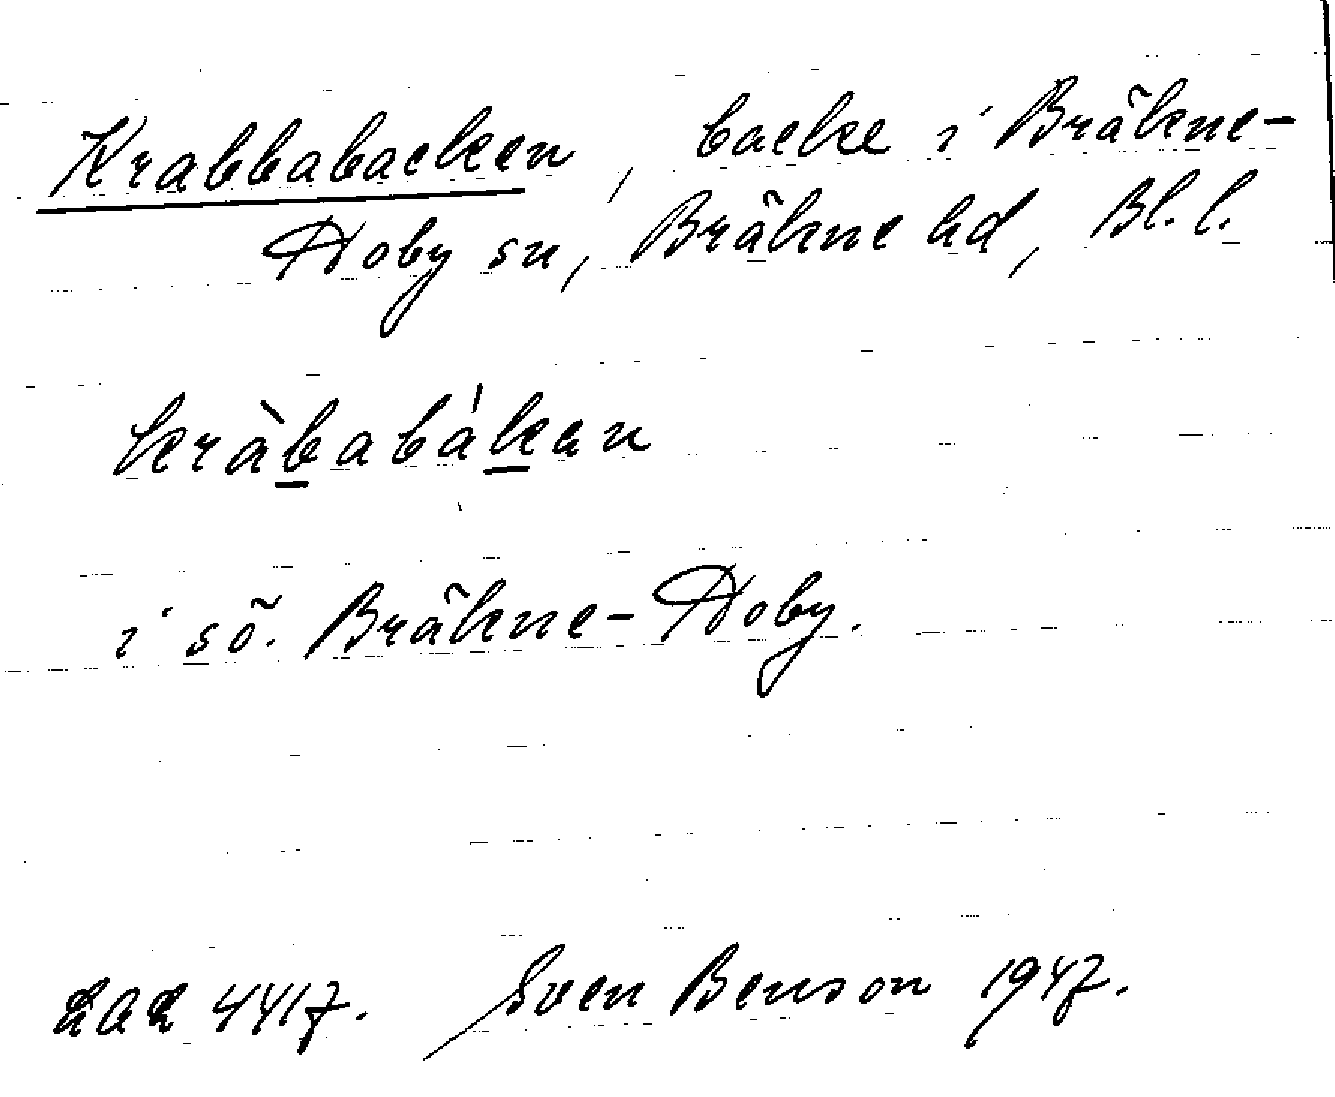 Krabbabacken, backe i Bräkne-
Hoby sn, Bräkne hd, Bl. l.
kràbabákan
i sö. Bräkne-Hoby.
LAL 4417. Sven Benson 1947.